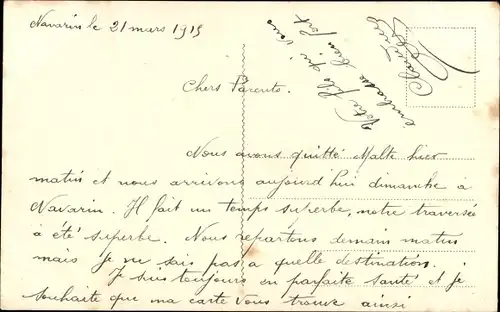 Navarin le 21 mars 1915
Chers Parents.
Nous avons quitté Malte hier
matin et nous arrivons aujourd'hui dimanche à
Navarin. Il fait un temps superbe, notre traversée
a été superbe. Nous repartons demain matin
mais je ne sais pas a quelle destination.
Je suis toujours en parfaite santé et je
souhaite que ma carte vous trouve ainsi
Votre fils qui vous
embrasse bien fort